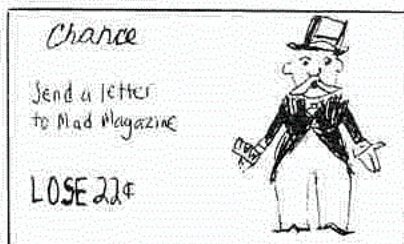 Chance
Send a letter
to Mad Magazine
LOSE 22¢